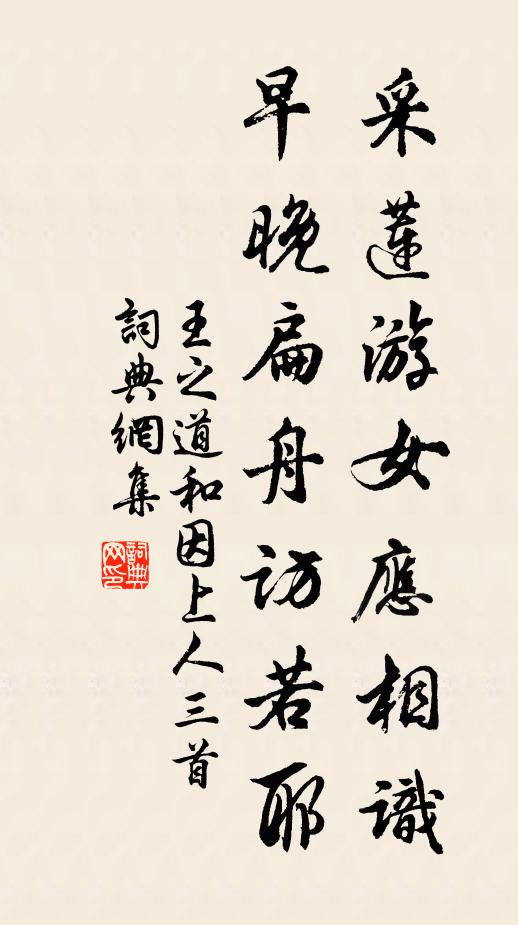 采蓮游女應相識
早晚扁舟訪若耶
王之道和因上人三首
詞典網集
詞典网印